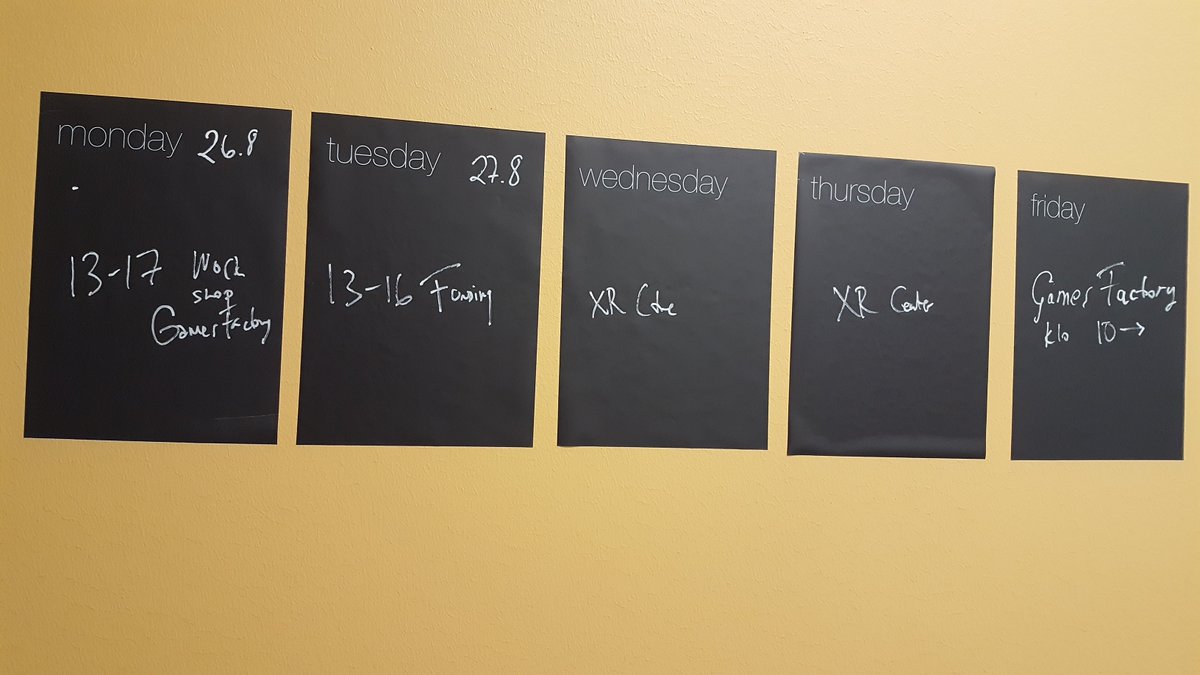 monday 26.8
13-17 Work
shop
Games Factory
tuesday 27.8
13-16 Funding
wednesday
XR
thursday
XR Center
friday
Games Factory
klo 10→